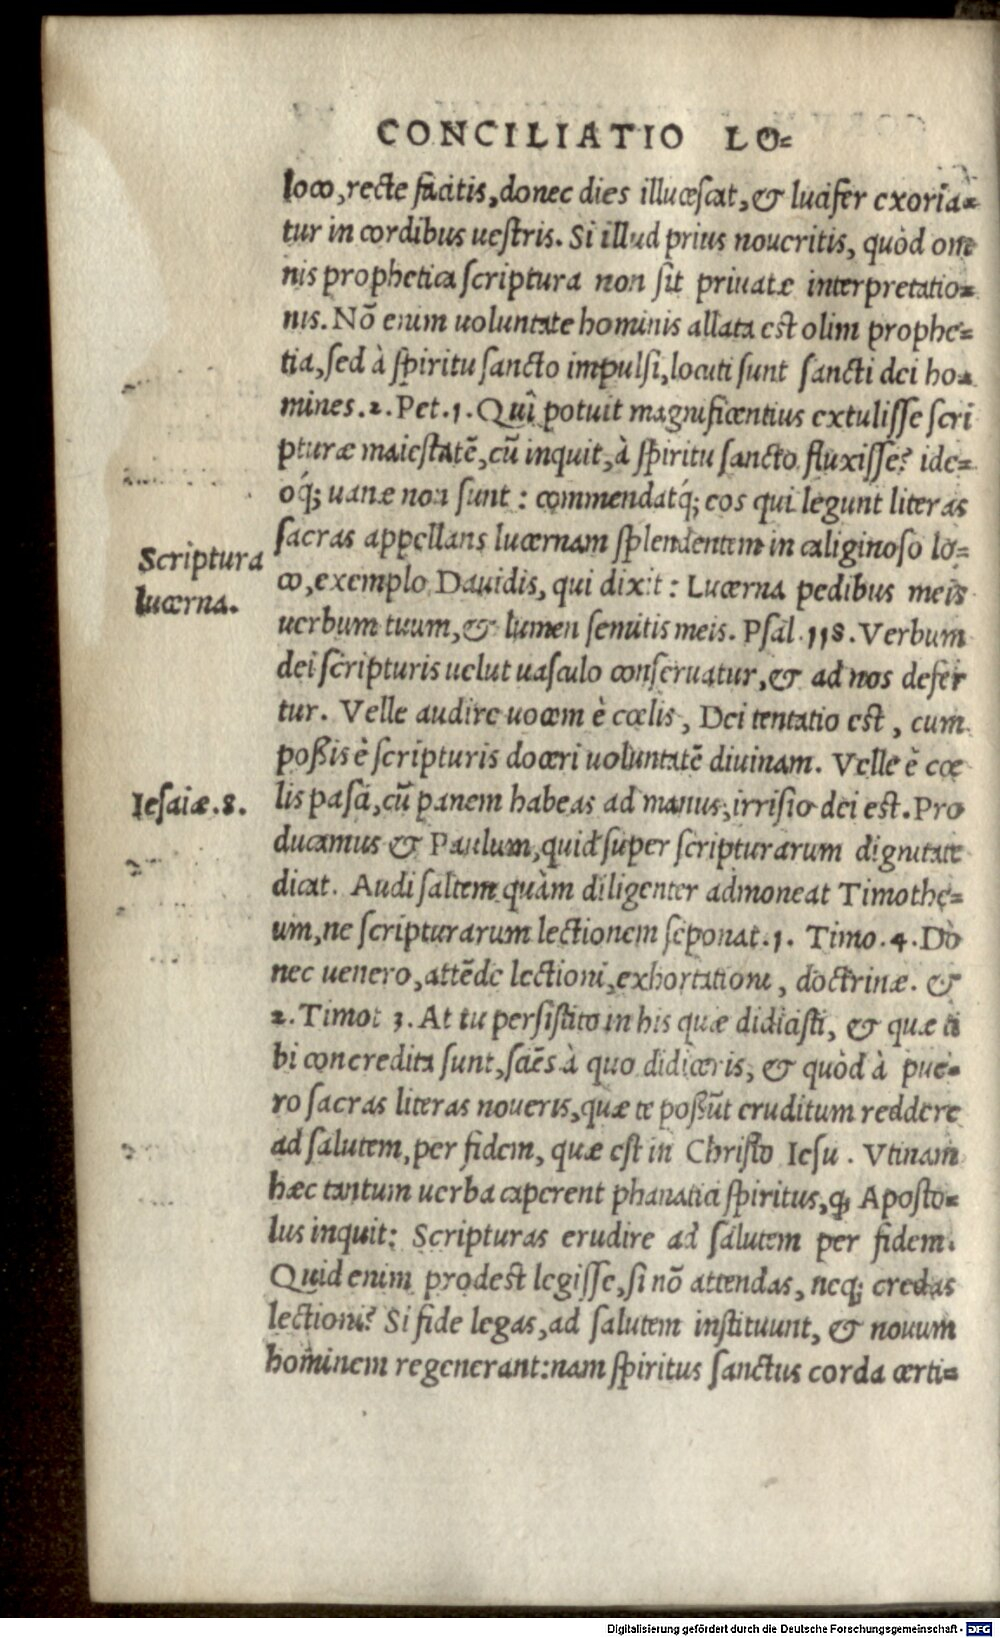 CONCILIATIO LO-
loco, recte facitis, donec dies illucescat, & lucifer exoria-
tur in cordibus uestris. Si illud prius noueritis, quòd om
nis prophetica scriptura non sit priuatæ interpretatio-
nis. Nõ enim uoluntate hominis allata est olim prophe-
tia, sed à spiritu sancto impulsi, locuti sunt sancti dei ho-
mines. 2. Pet. 1. Quî potuit magnificentius extulisse scri
pturæ maiestatẽ, cũ inquit, à spiritu sancto fluxisse? ide-
oq́; uanæ non sunt: commendatq́; eos qui legunt literas
sacras appellans lucernam splendentem in caliginoso lo-
co, exemplo Dauidis, qui dixit: Lucerna pedibus meis
uerbum tuum, & lumen semitis meis. Psal. 118. Verbum
dei scripturis uelut uasculo conseruatur, & ad nos defer
tur. Velle audire uocem è cœlis, Dei tentatio est, cum
poßis è scripturis doceri uoluntatẽ diuinam. Velle è cœ
lis pasci, cũ panem habeas ad manus, irrisio dei est. Pro
ducamus & Paulum, quid super scripturarum dignitate
dicat. Audi saltem quàm diligenter admoneat Timothe-
um, ne scripturarum lectionem seponat. 1. Timo. 4. Do
nec uenero, attẽde lectioni, exhortationi, doctrinæ. &
2. Timot 3. At tu persistito in his quæ didicisti, & quæ ti
bi concredita sunt, sciẽs à quo didiceris, & quòd à pue-
ro sacras literas noueris, quæ te poßũt eruditum reddere
ad salutem, per fidem, quæ est in Christo Iesu. Vtinam
hæc tantum uerba caperent phanatici spiritus, q̃ Aposto-
lus inquit: Scripturas erudire ad salutem per fidem.
Quid enim prodest legisse, si nõ attendas, neq; credas
lectioni? Si fide legas, ad salutem instituunt, & nouum
hominem regenerant: nam spiritus sanctus corda certi-
Scriptura
lucerna.
Iesaiæ. 8.
Digitalisierung gefördert durch die Deutsche Forschungsgemeinschaft - DFG